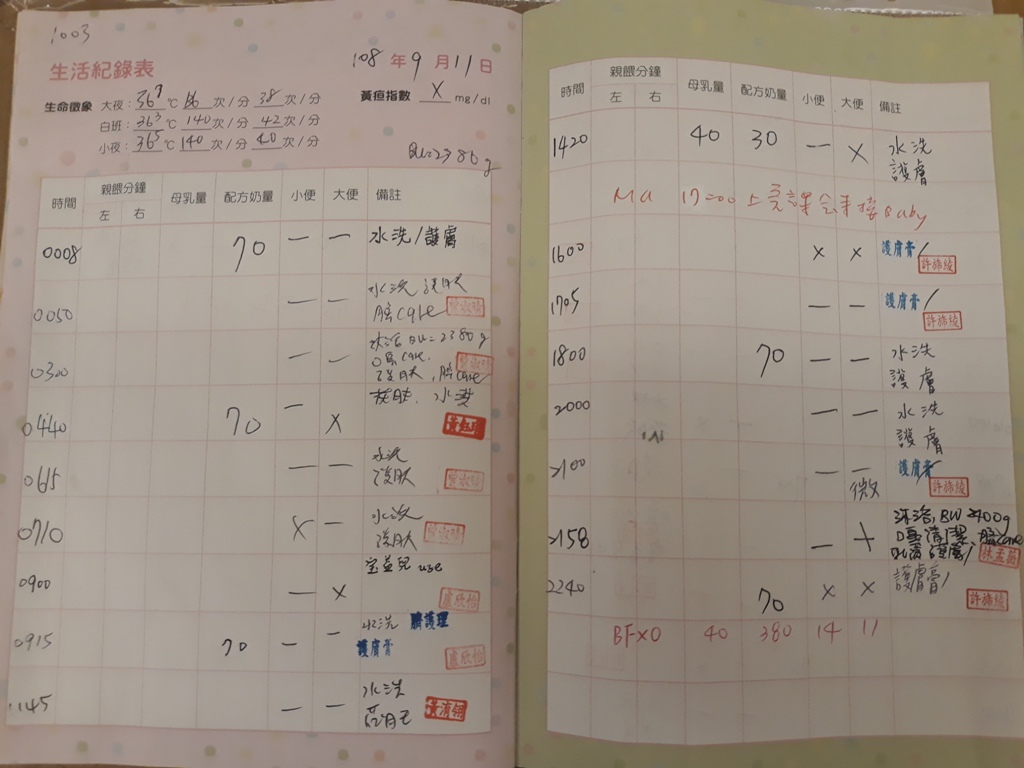 1003
生活紀錄表
108 年 9 月 11 日
生命徵象 大夜: 36⁷ ℃ 146 次/分 38 次/分
黃疸指數 X mg/dl
白班: 36³ ℃ 140 次/分 42 次/分
小夜: 36⁵ ℃ 140 次/分 40 次/分
BW=2380g
時間 親餵分鐘 左 右 母乳量 配方奶量 小便 大便 備註
0008 70 — — 水洗/護膚
0050 — — 水洗 護肤
臍care
0300 — — BW=2380g
care.
護肤, 臍care
0440 70 — X 護肤. 水洗
0615 — — 水洗
護肤
0710 X — 水洗
護肤
0900 — X 宝益兒 use
盧欣怡
0915 70 — — 水洗 臍護理
護膚膏
盧欣怡
1145 — — 水洗
時間 親餵分鐘 左 右 母乳量 配方奶量 小便 大便 備註
1420 40 30 — X 水洗
護膚
Ma 17:00 上完課会來接 Baby
1600 X X 護膚膏/
許絲綾
1705 — — 護膚膏/
許絲綾
1800 70 — — 水洗
護膚
2000 — — 水洗
護膚
2100 — — 微 護膚膏/
許絲綾
2158 — + 沐浴, BW 2400g
臍care
2240 70 X X 護膚膏/
許絲綾
BFX0 40 380 14 11